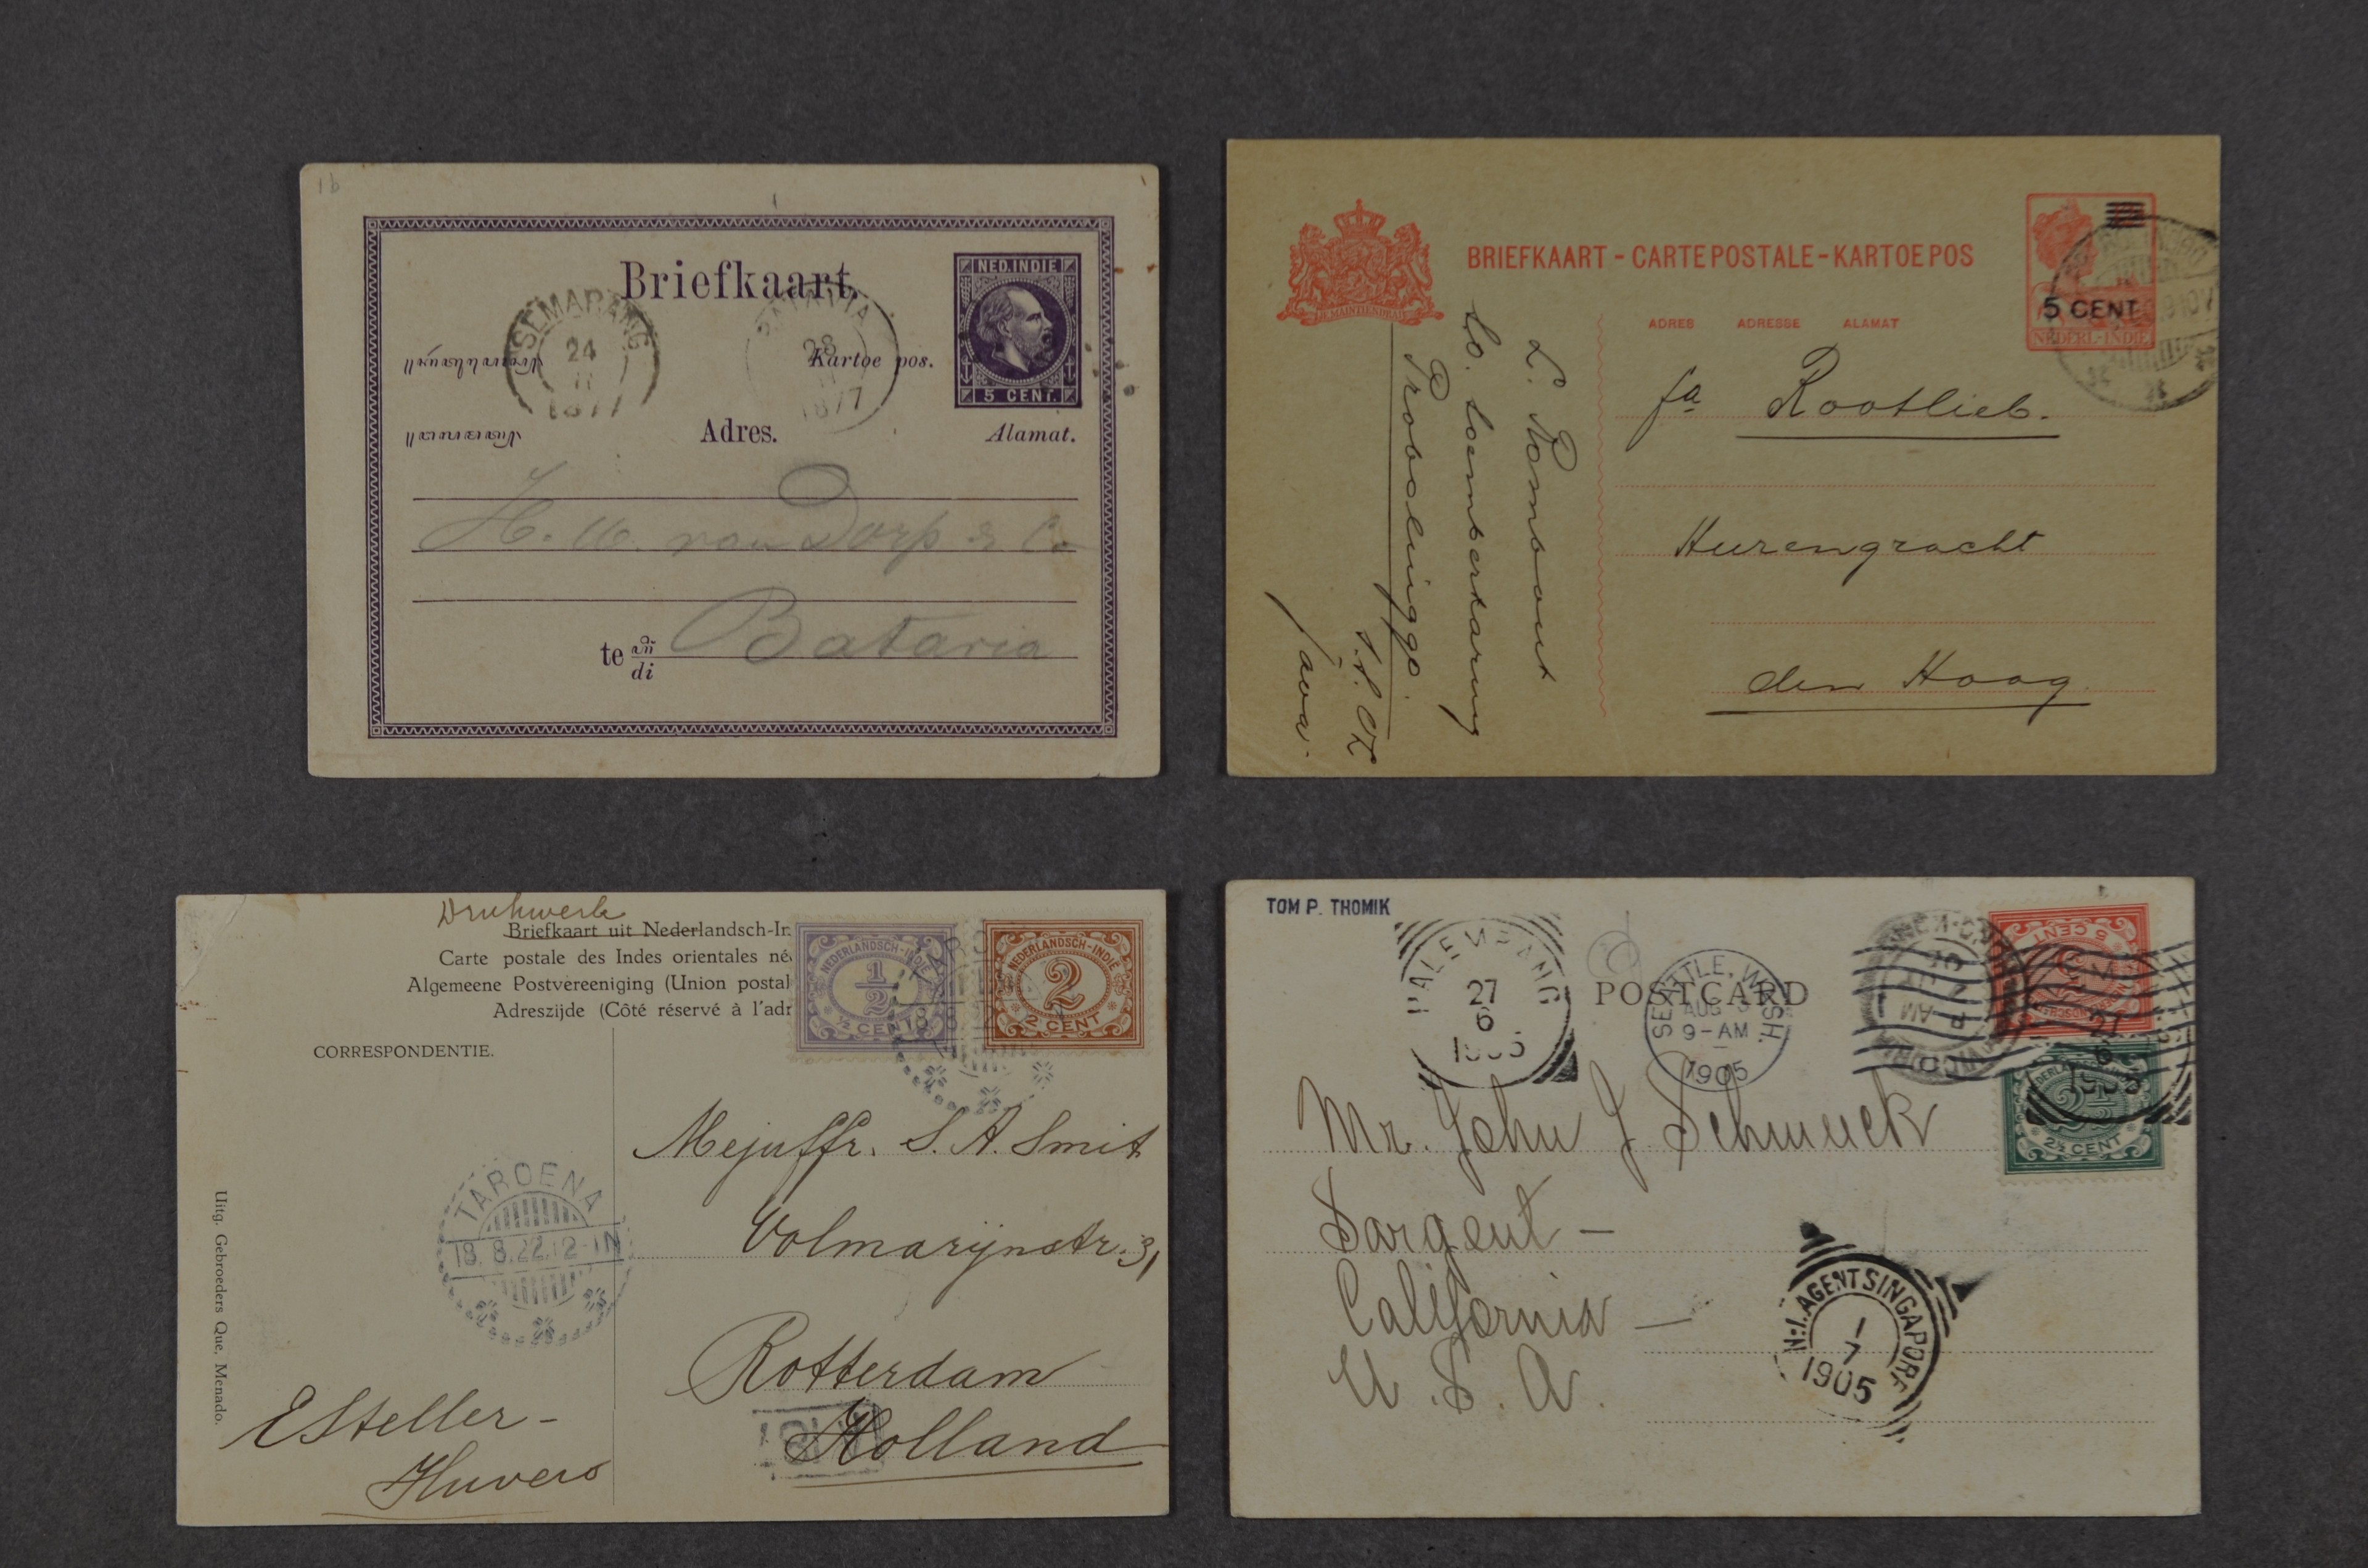 1b
Briefkaart.
NED.INDIE
5 CENT.
SEMARANG
24
11
1877
BATAVIA
28
1877
Kartoe pos.
Adres.
Alamat.
H. M. van Dorp & Co
te
di
Batavia
BRIEFKAART - CARTE POSTALE - KARTOE POS
JE MAINTIENDRAI
ADRES ADRESSE ALAMAT
5 CENT
NEDERL-INDIE
fa Rootlieb.
Heerengracht
den Haag
L. Rombout
Probolinggo.
Java.
Drukwerk
Briefkaart uit Nederlandsch-In
Carte postale des Indes orientales née
Algemeene Postvereeniging (Union postal
Adreszijde (Côté réservé à l'adr
CORRESPONDENTIE.
NEDERLANDSCH-INDIË
1/2
½ CENT
NEDERLANDSCH-INDIË
2
2 CENT
TAROENA
18.8.22.12-1N
Mejuffr. S. A. Smit
Volmarijnstr. 31
Rotterdam
Holland
E Steller-
Huvers
Uitg. Gebroeders Que, Menado.
TOM P. THOMIK
PALEMBANG
27
6
1905
POSTCARD
SEATTLE, WASH.
AUG 3
9-AM
1905
5 CENT
2½ CENT
Mr. John J Schmuck
Sargent -
California -
U. S. A.
N:I. AGENT SINGAPORE
1
7
1905